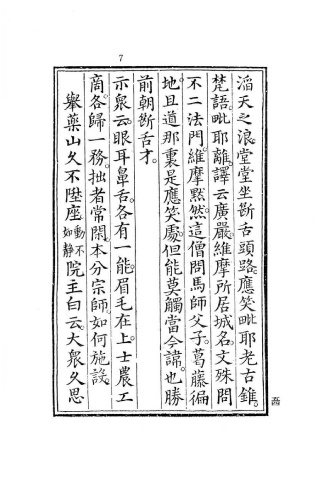 7
滔天之浪。堂堂坐斷舌頭路。應笑毗耶老古錐。
梵語毗耶離。譯云廣嚴。維摩所居城名。文殊問
不二法門。維摩默然。這僧問馬師父子。葛藤徧
地。且道那裏是應笑處。但能莫觸當今諱。也勝
前朝斷舌才。
示衆云。眼耳鼻舌。各有一能。眉毛在上。士農工
商。各歸一務。拙者常閑。本分宗師。如何施設。
舉藥山久不陞座動不如靜院主白云。大衆久思